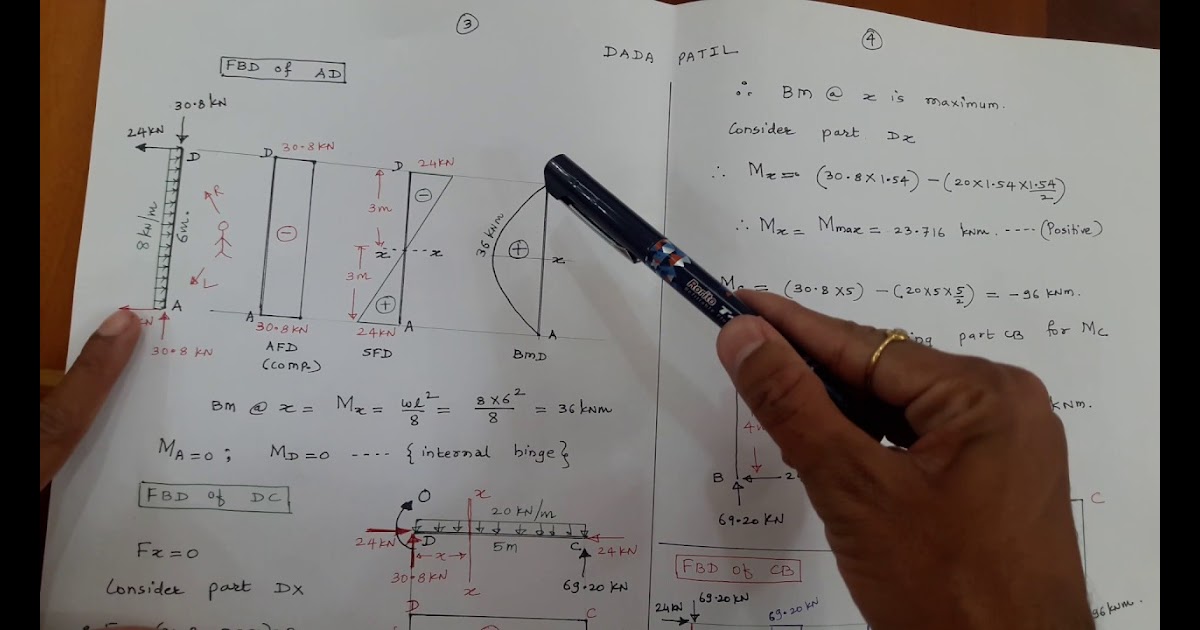 ③
FBD of AD
30.8 kN
24 kN
D
8 kN/m
6m.
R
L
A
30.8 kN
D 30.8 kN
⊖
A 30.8 kN
AFD
(comp.)
D 24 kN
⊖
3m
x x
3m
⊕
24 kN A
SFD
36 kNm
⊕
x
A
BMD
BM @ x = Mx = wl²/8 = 8×6²/8 = 36 kNm
MA=0 ; MD=0 ---- {internal hinge}
FBD of DC
Fx=0
Consider part DX
O
x
20 kN/m
24 kN D x 5m C 24 kN
30.8 kN
x
69.20 kN
D C
DADA PATIL
④
∴ BM @ x is maximum.
Consider part Dx
∴ Mx = (30.8×1.54) − (20×1.54×1.54/2)
∴ Mx = Mmax = 23.716 kNm. ---- (Positive)
= (30.8×5) − (20×5×5/2) = −96 kNm.
part CB for Mc
kNm.
B
69.20 kN
C
FBD of CB
24 kN
69.20 kN
69.20 kN
96 kNm.
Rorito